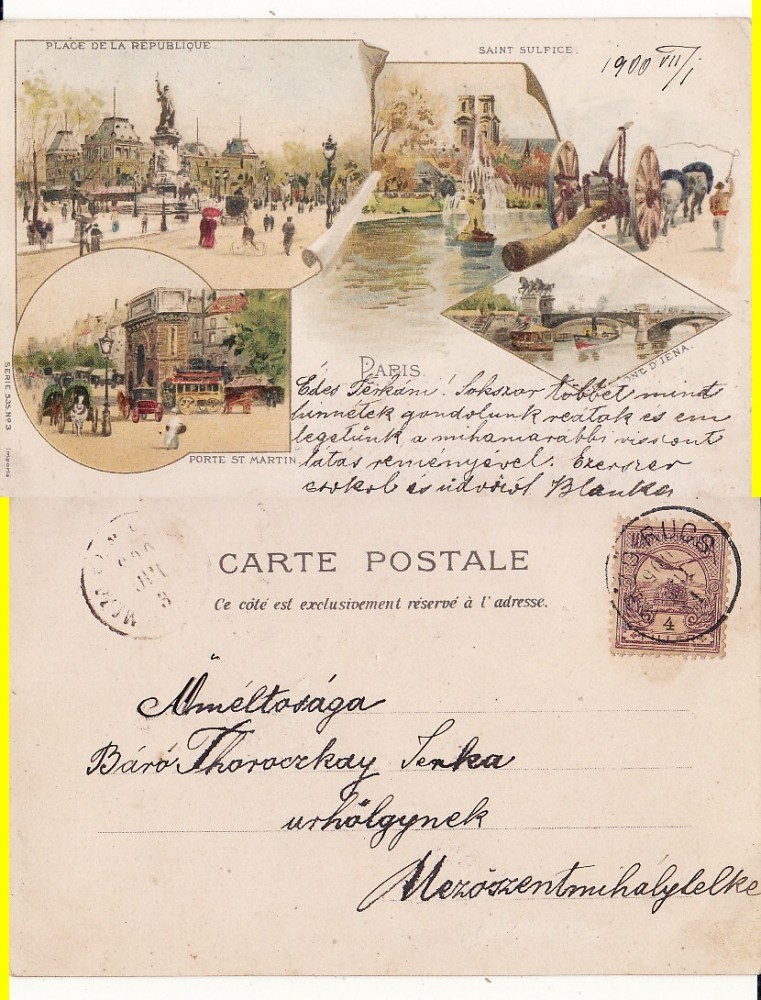 PLACE DE LA REPUBLIQUE.
SAINT SULPICE.
1900 VII/1
PONT D'IENA.
PARIS.
PORTE ST MARTIN
SERIE 535 Nº 3
Édes Ferkám! Sokszor többet mind
hinnétek gondolunk reátok és em
legetünk a mihamarábbi viszont
látás reményével. Ezerszer
csókol és üdvözöl Blanka
CARTE POSTALE
Ce côté est exclusivement réservé à l'adresse.
4
FILLÉR
Ő Méltósága
Báró Thoroczkay Ferka
urhölgynek
Mezőszentmihálytelke